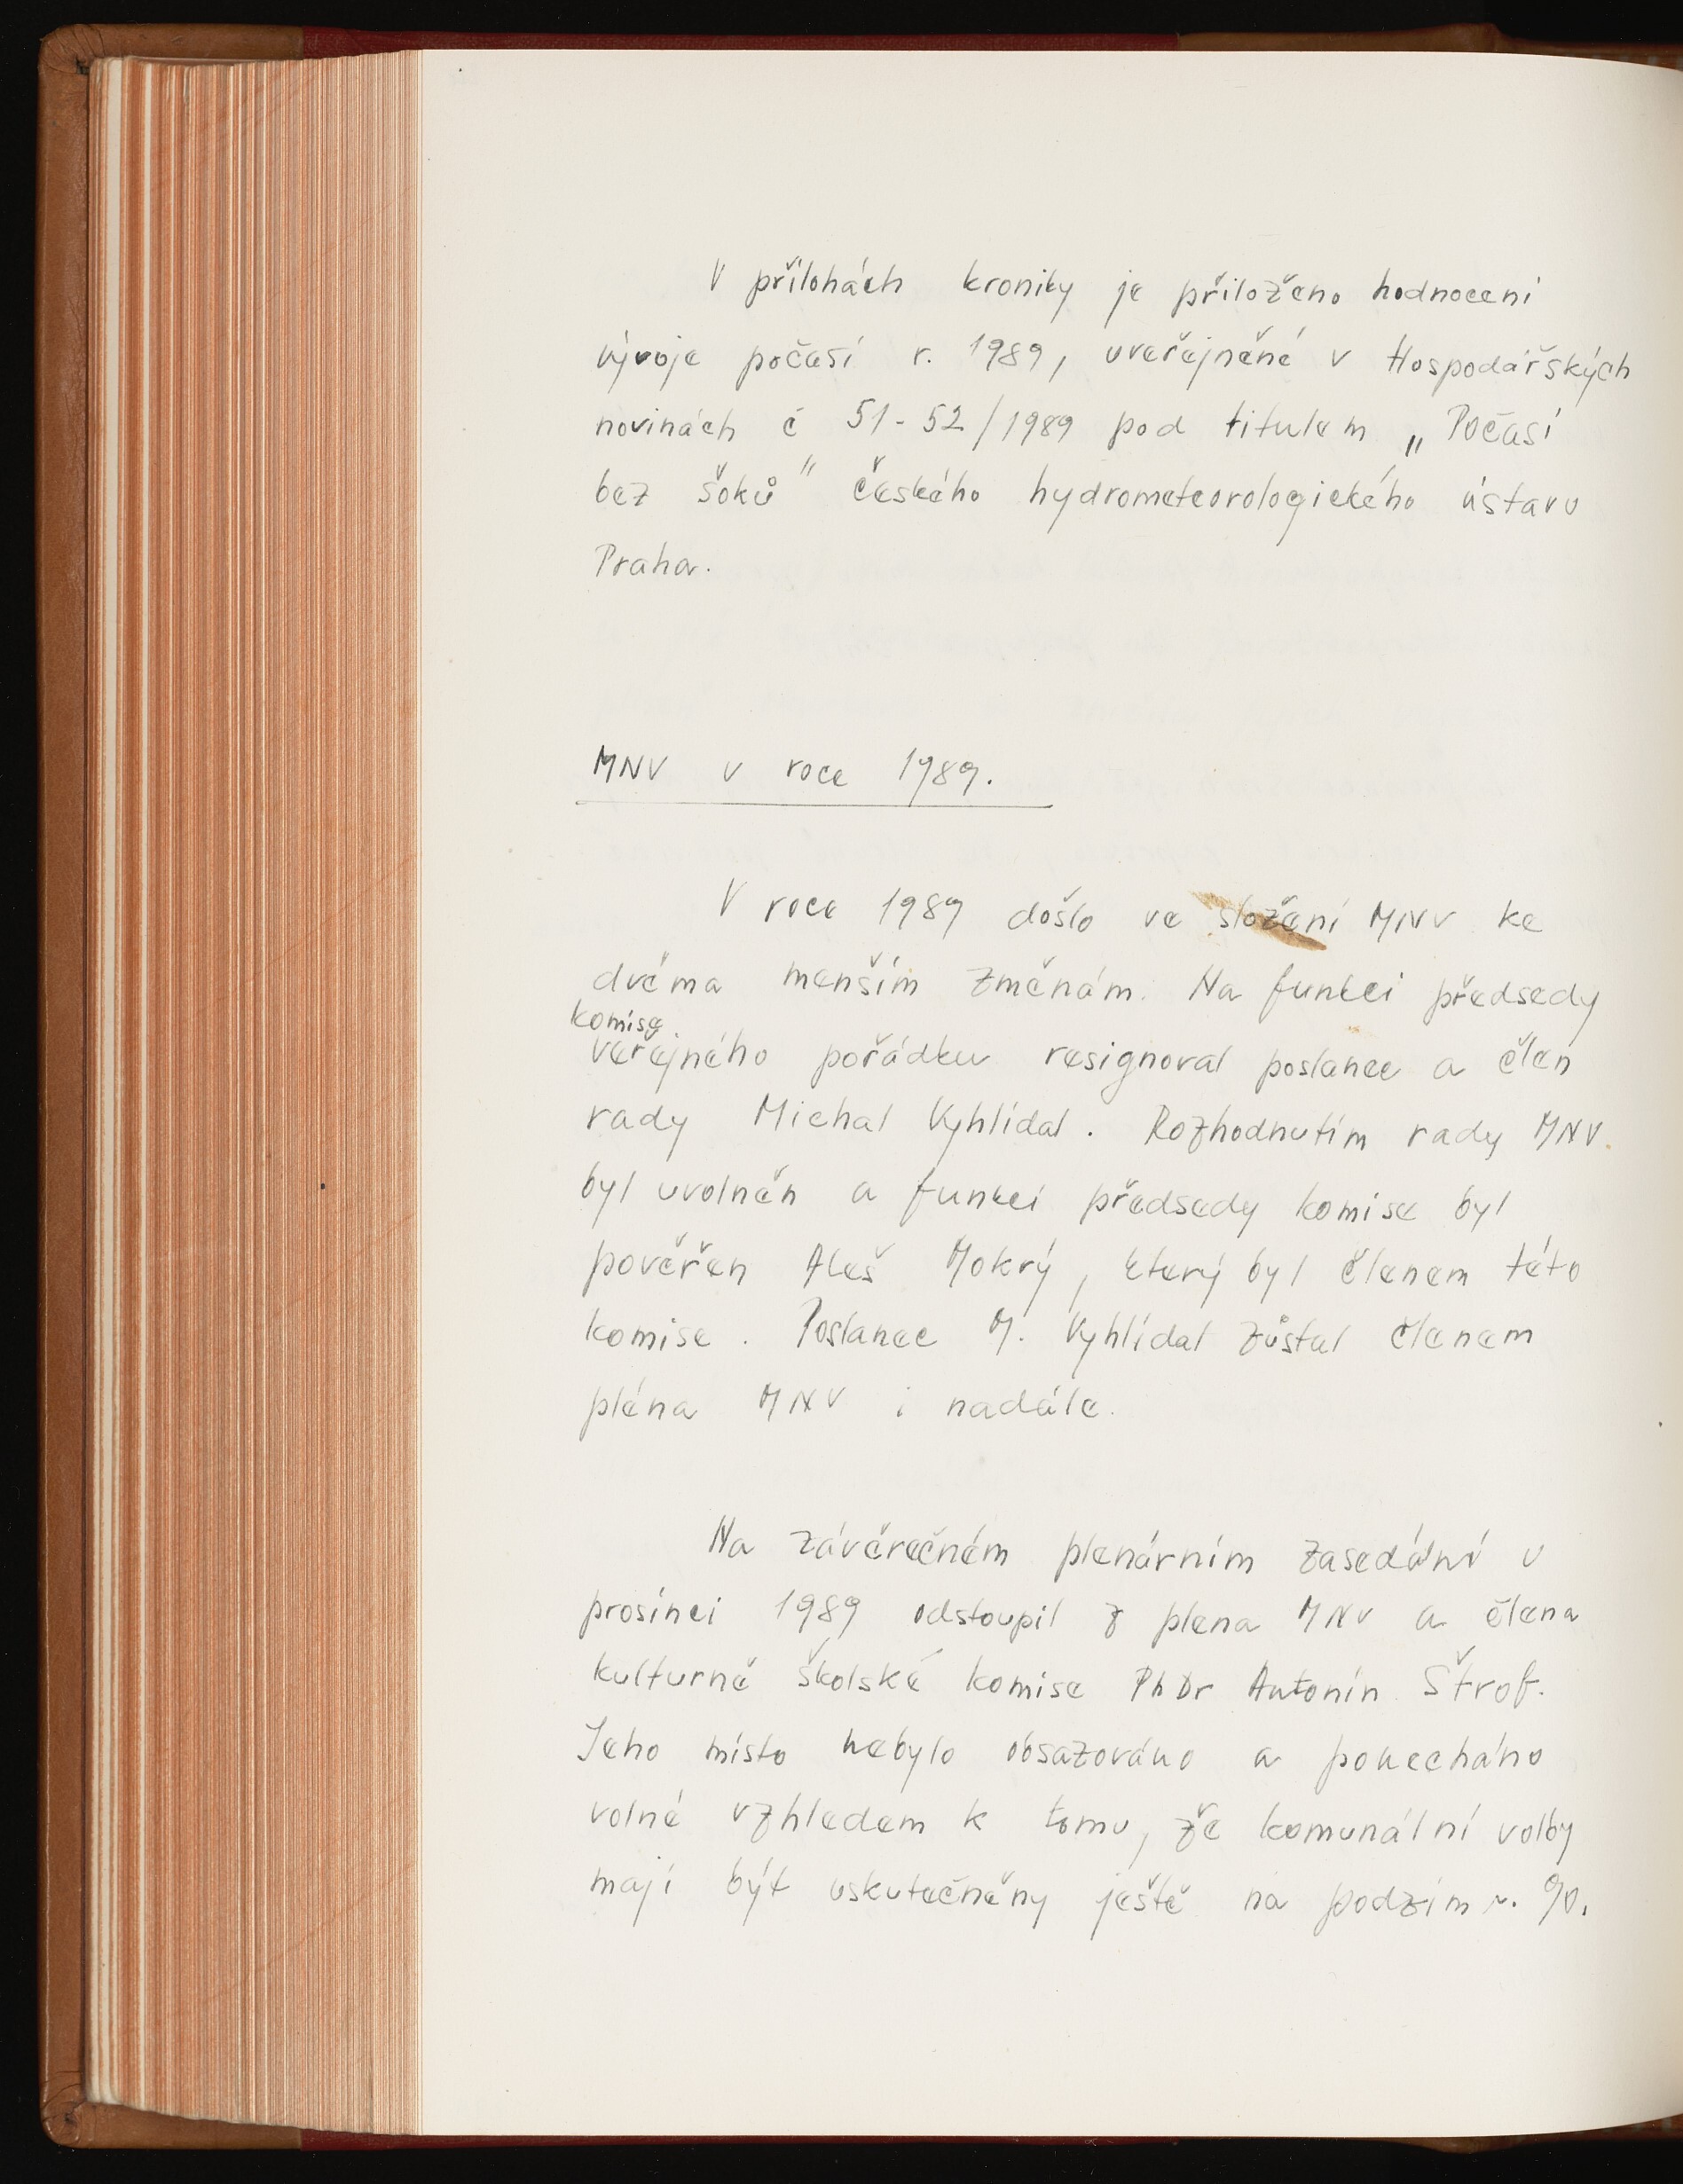 V přílohách kroniky je přiloženo hodnocení
vývoje počasí r. 1989, uveřejněné v Hospodářských
novinách č 51-52/1989 pod titulem „Počasí
bez šoků" českého hydrometeorologického ústavu
Praha.
MNV v roce 1989.
V roce 1989 došlo ve složení MNV ke
dvěma menším změnám. Na funkci předsedy
komise
veřejného pořádku resignoval poslanec a člen
rady Michal Vyhlídal. Rozhodnutím rady MNV
byl uvolněn a funkcí předsedy komise byl
pověřen Aleš Mokrý, který byl členem této
komise. Poslanec M. Vyhlídal zůstal členem
pléna MNV i nadále.
Na závěrečném plenárním zasedání v
prosinci 1989 odstoupil z plena MNV a člena
kulturně školské komise PhDr Antonín Štrof.
Jeho místo nebylo obsazováno a ponecháno
volné vzhledem k tomu, že komunální volby
mají být uskutečněny ještě na podzim r. 90.